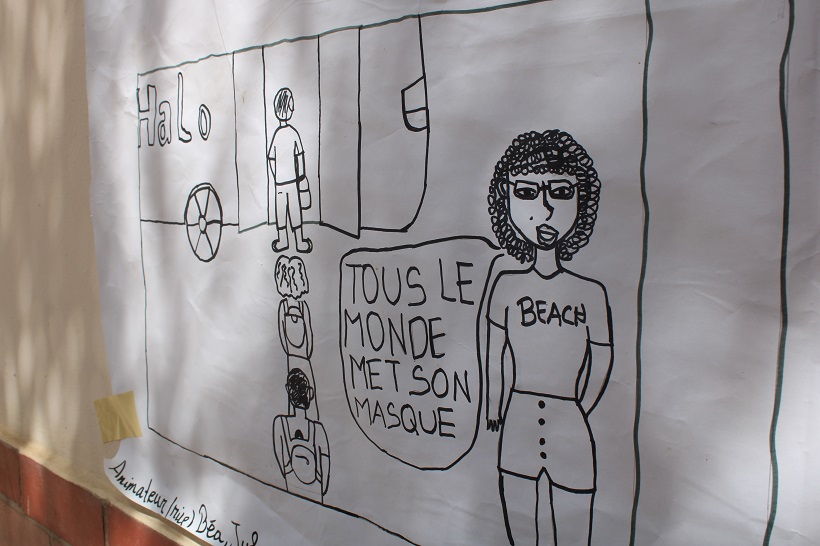 Halo
BEACH
TOUS LE
MONDE
MET SON
MASQUE
Animateur(rice) Béa,